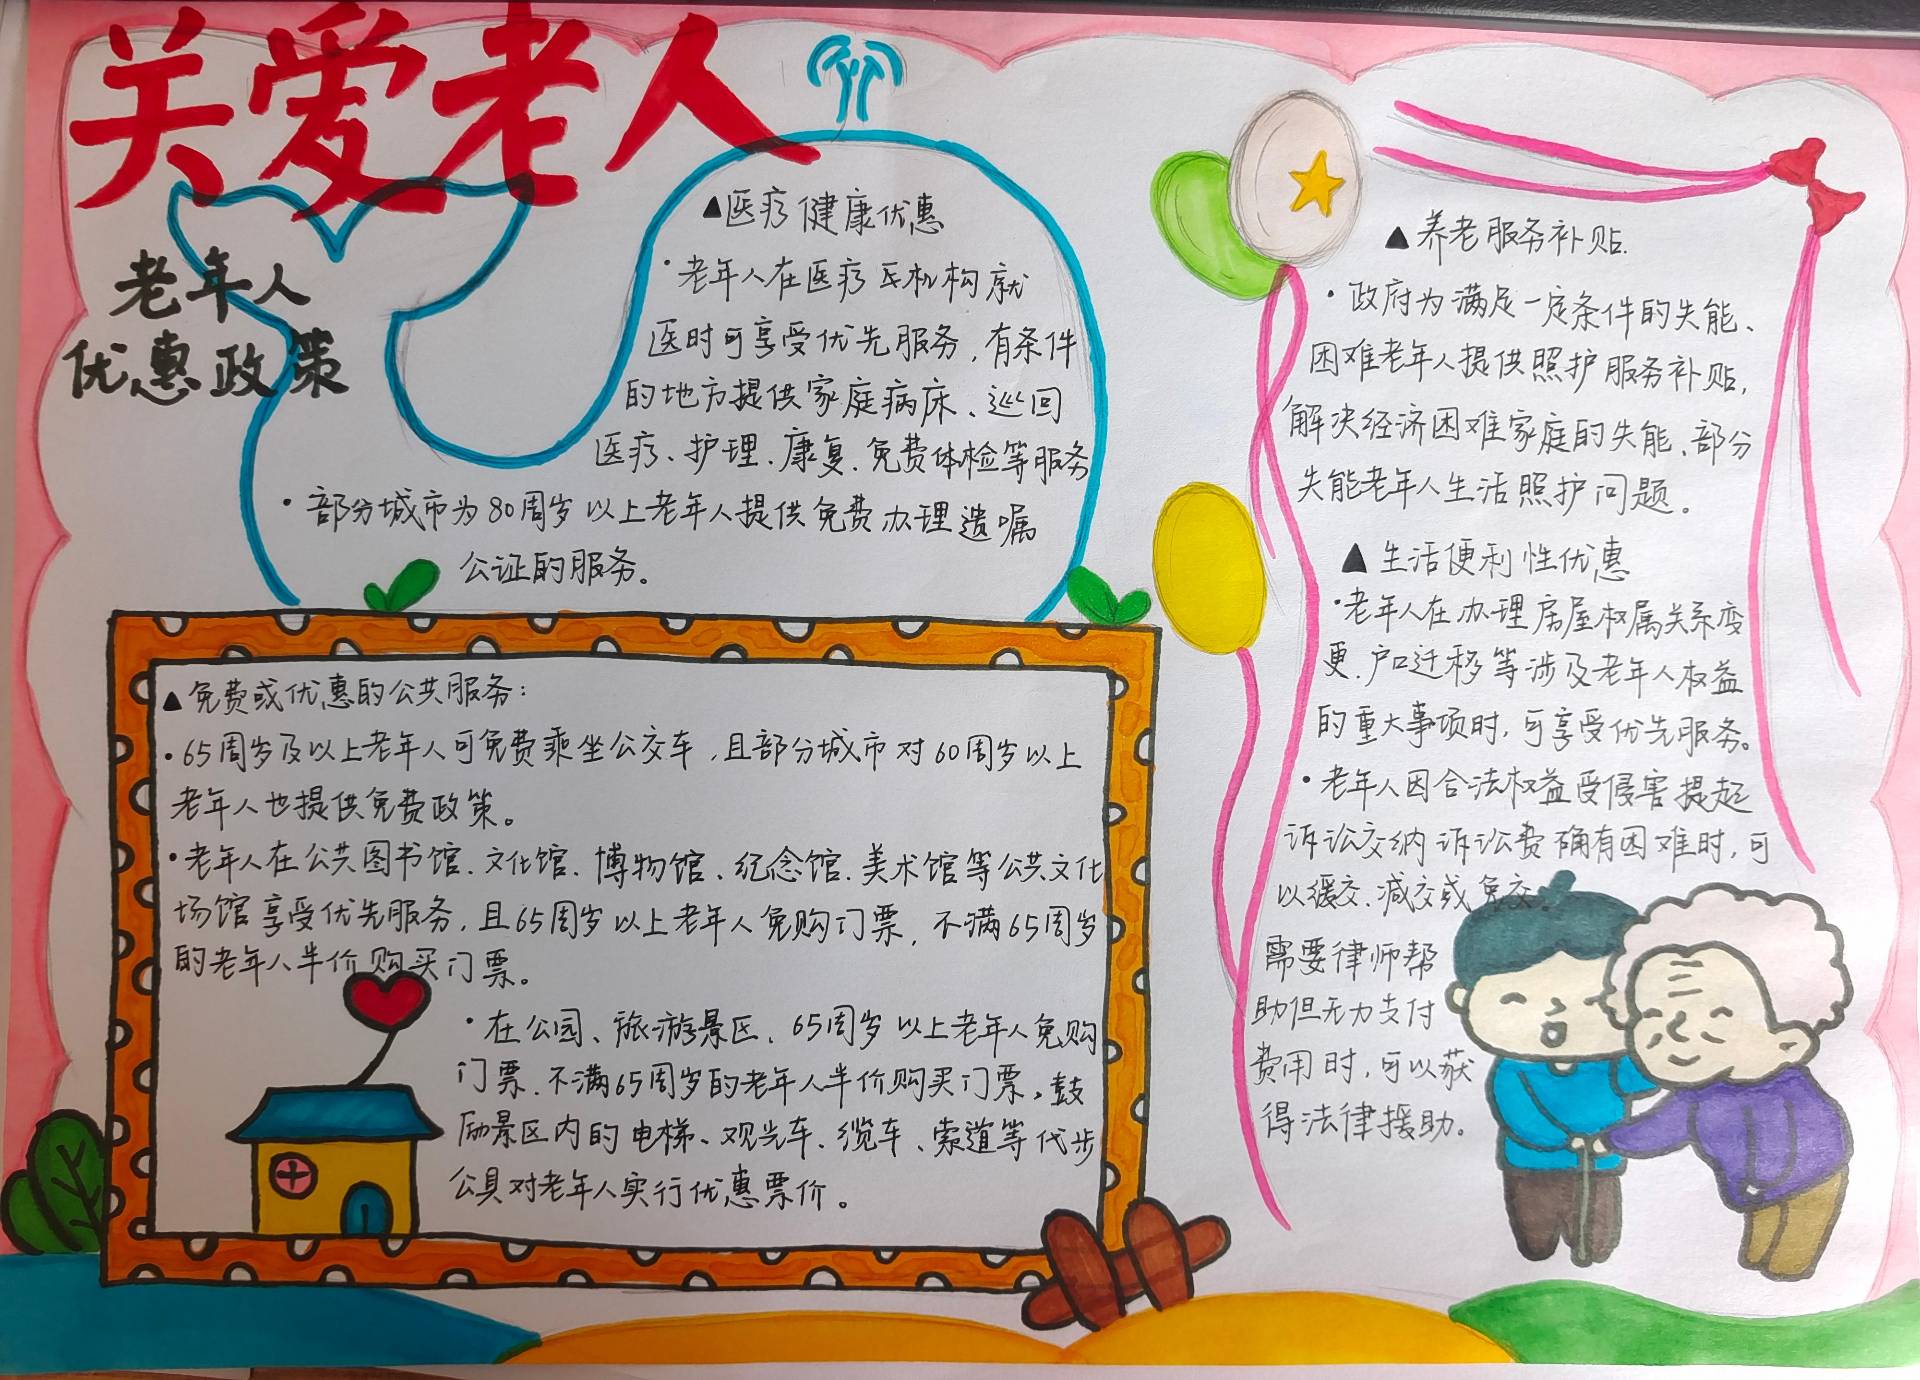 关爱老人
老年人
优惠政策
▲医疗健康优惠
·老年人在医疗机构就
医时可享受优先服务，有条件
的地方提供家庭病床、巡回
医疗、护理、康复、免费体检等服务
·部分城市为80周岁以上老年人提供免费办理遗嘱
公证的服务。
▲免费或优惠的公共服务：
·65周岁及以上老年人可免费乘坐公交车，且部分城市对60周岁以上
老年人也提供免费政策。
·老年人在公共图书馆、文化馆、博物馆、纪念馆、美术馆等公共文化
场馆享受优先服务，且65周岁以上老年人免购门票，不满65周岁
的老年人半价购买门票。
·在公园、旅游景区、65周岁以上老年人免购
门票、不满65周岁的老年人半价购买门票。鼓
励景区内的电梯、观光车、缆车、索道等代步
公具对老年人实行优惠票价。
▲养老服务补贴.
·政府为满足一定条件的失能、
困难老年人提供照护服务补贴，
解决经济困难家庭的失能、部分
失能老年人生活照护问题。
▲生活便利性优惠
·老年人在办理房屋权属关系变
更、户口迁移等涉及老年人权益
的重大事项时，可享受优先服务。
·老年人因合法权益受侵害提起
诉讼交纳诉讼费确有困难时，可
以缓交、减交或免交。
需要律师帮
助但无力支付
费用时，可以获
得法律援助。